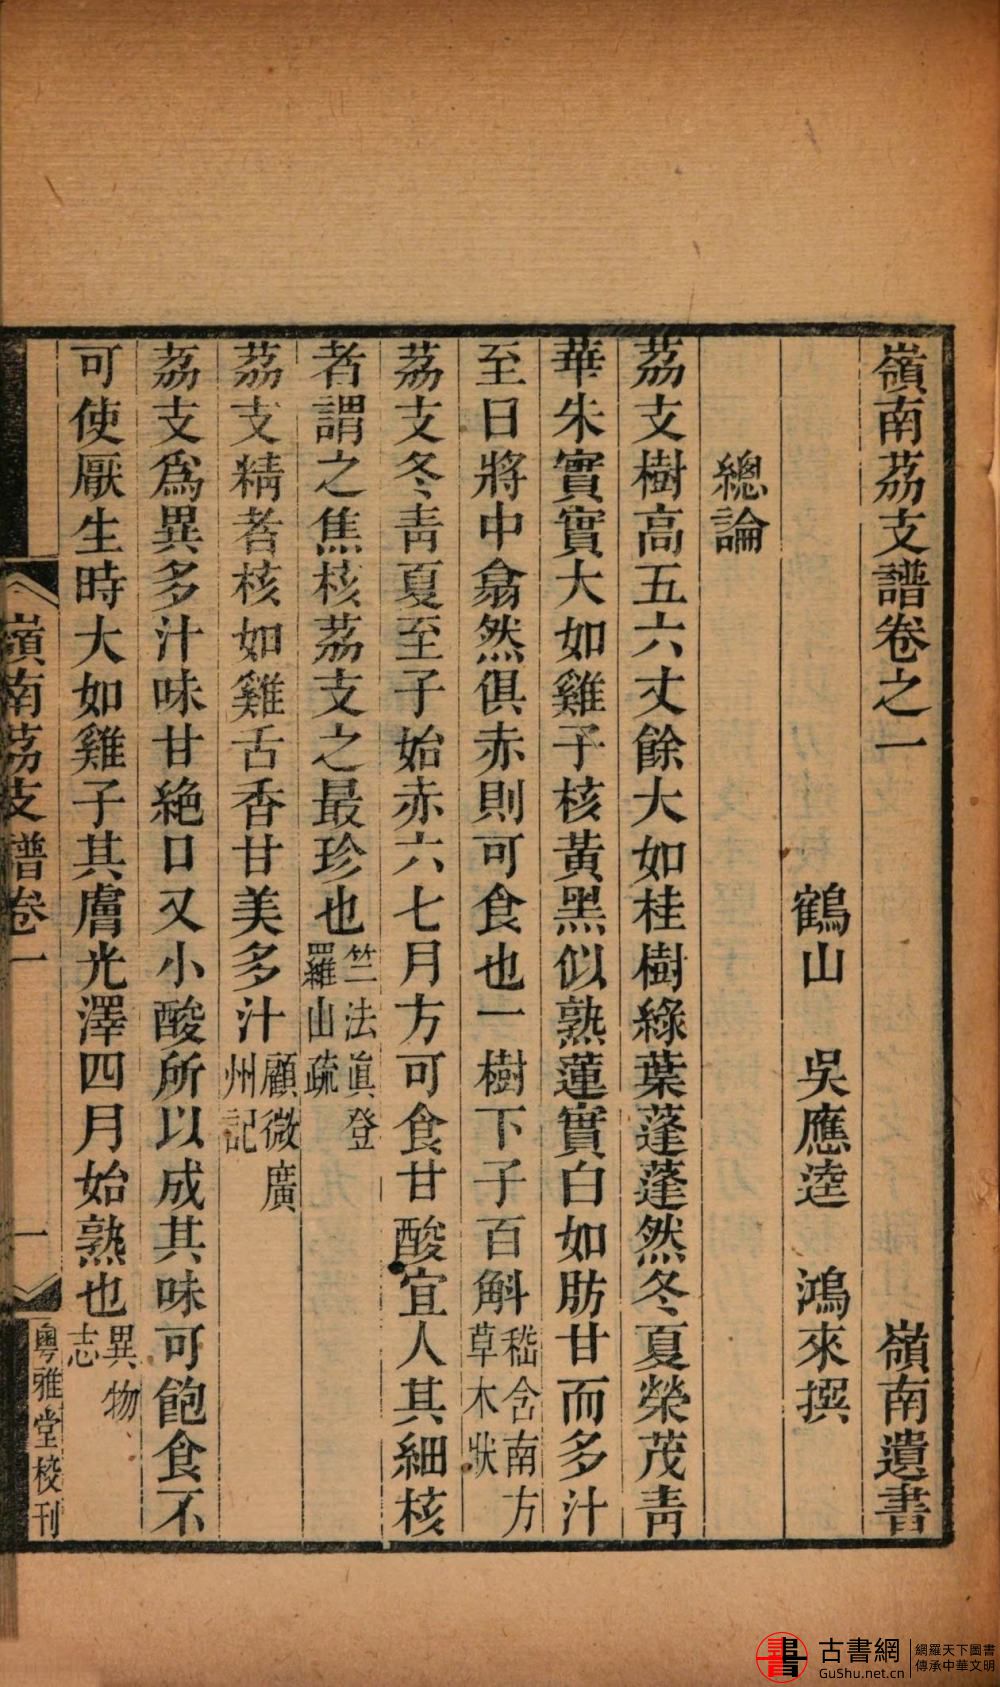 嶺南荔支譜卷之一　嶺南遺書
鶴山　吳應逵　鴻來撰
總論
荔支樹高五六丈餘大如桂樹綠葉蓬蓬然冬夏榮茂青
華朱實實大如雞子核黃黑似熟蓮實白如肪甘而多汁
至日將中翕然俱赤則可食也一樹下子百斛嵇含南方草木狀
荔支冬青夏至子始赤六七月方可食甘酸宜人其細核
者謂之焦核荔支之最珍也竺法眞登羅山疏
荔支精者核如雞舌香甘美多汁顧微廣州記
荔支爲異多汁味甘絶口又小酸所以成其味可飽食不
可使厭生時大如雞子其膚光澤四月始熟也異物志
嶺南荔支譜卷一　一　粵雅堂校刊
古書網
GuShu.net.cn
網羅天下圖書
傳承中華文明